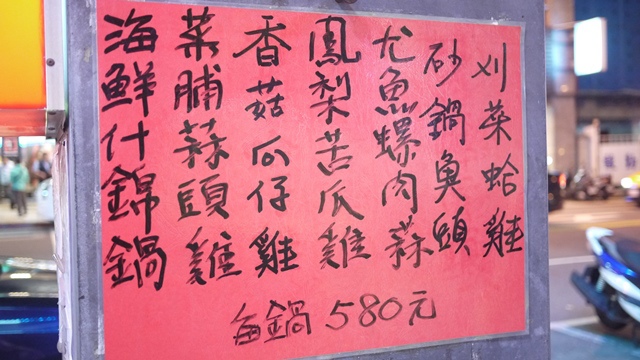 刈菜蛤雞
砂鍋魚頭
尤魚螺肉蒜
鳳梨苦瓜雞
香菇瓜仔雞
菜脯蒜頭雞
海鮮什錦鍋
每鍋580元